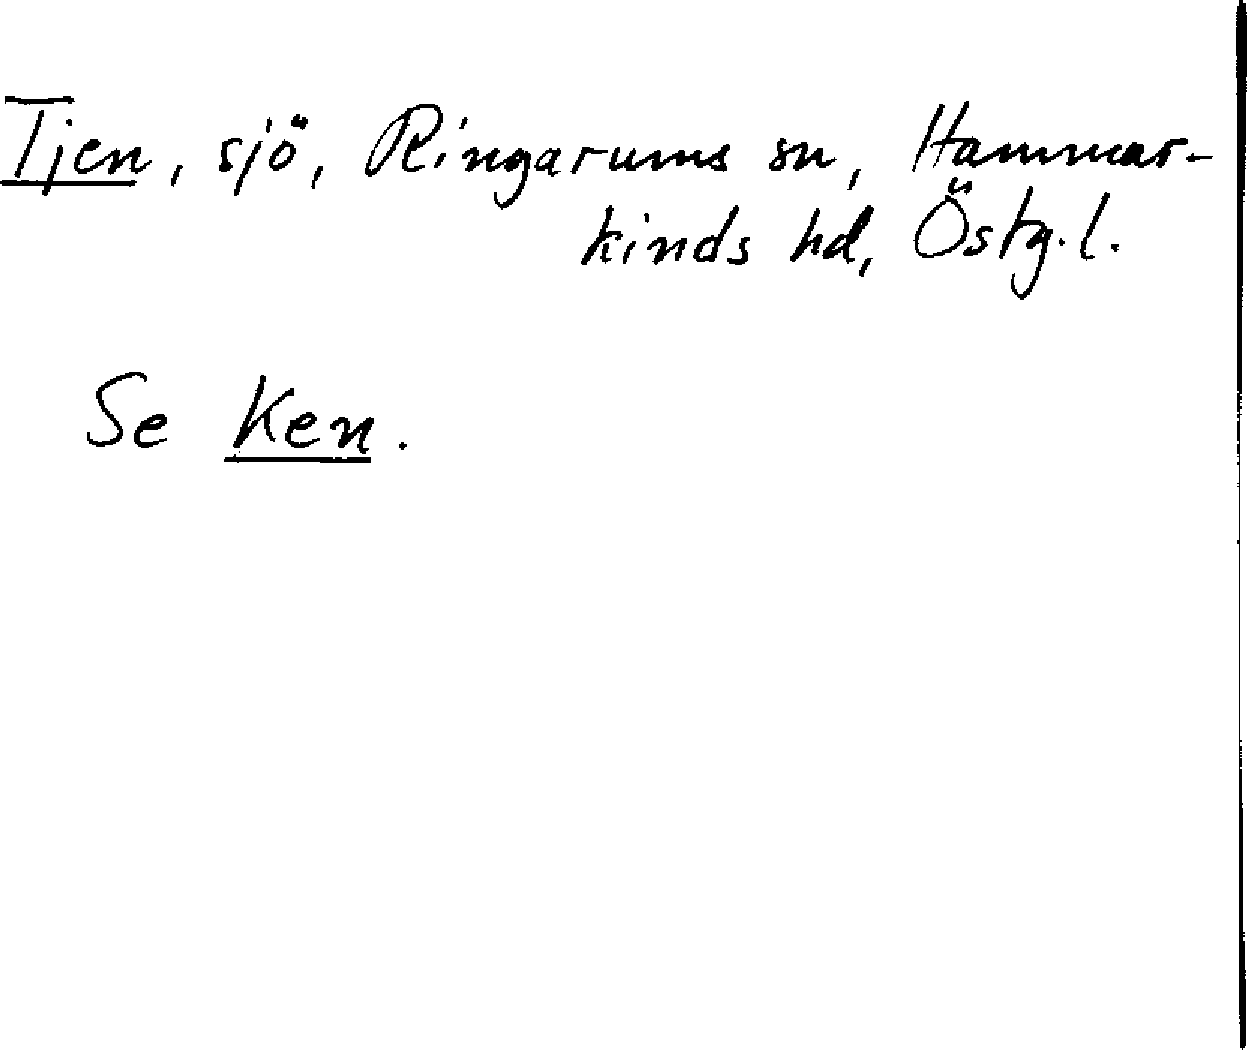 Tjen, sjö, Ringarums sn, Hammar-
kinds hd, Östg.l.
Se Ken.